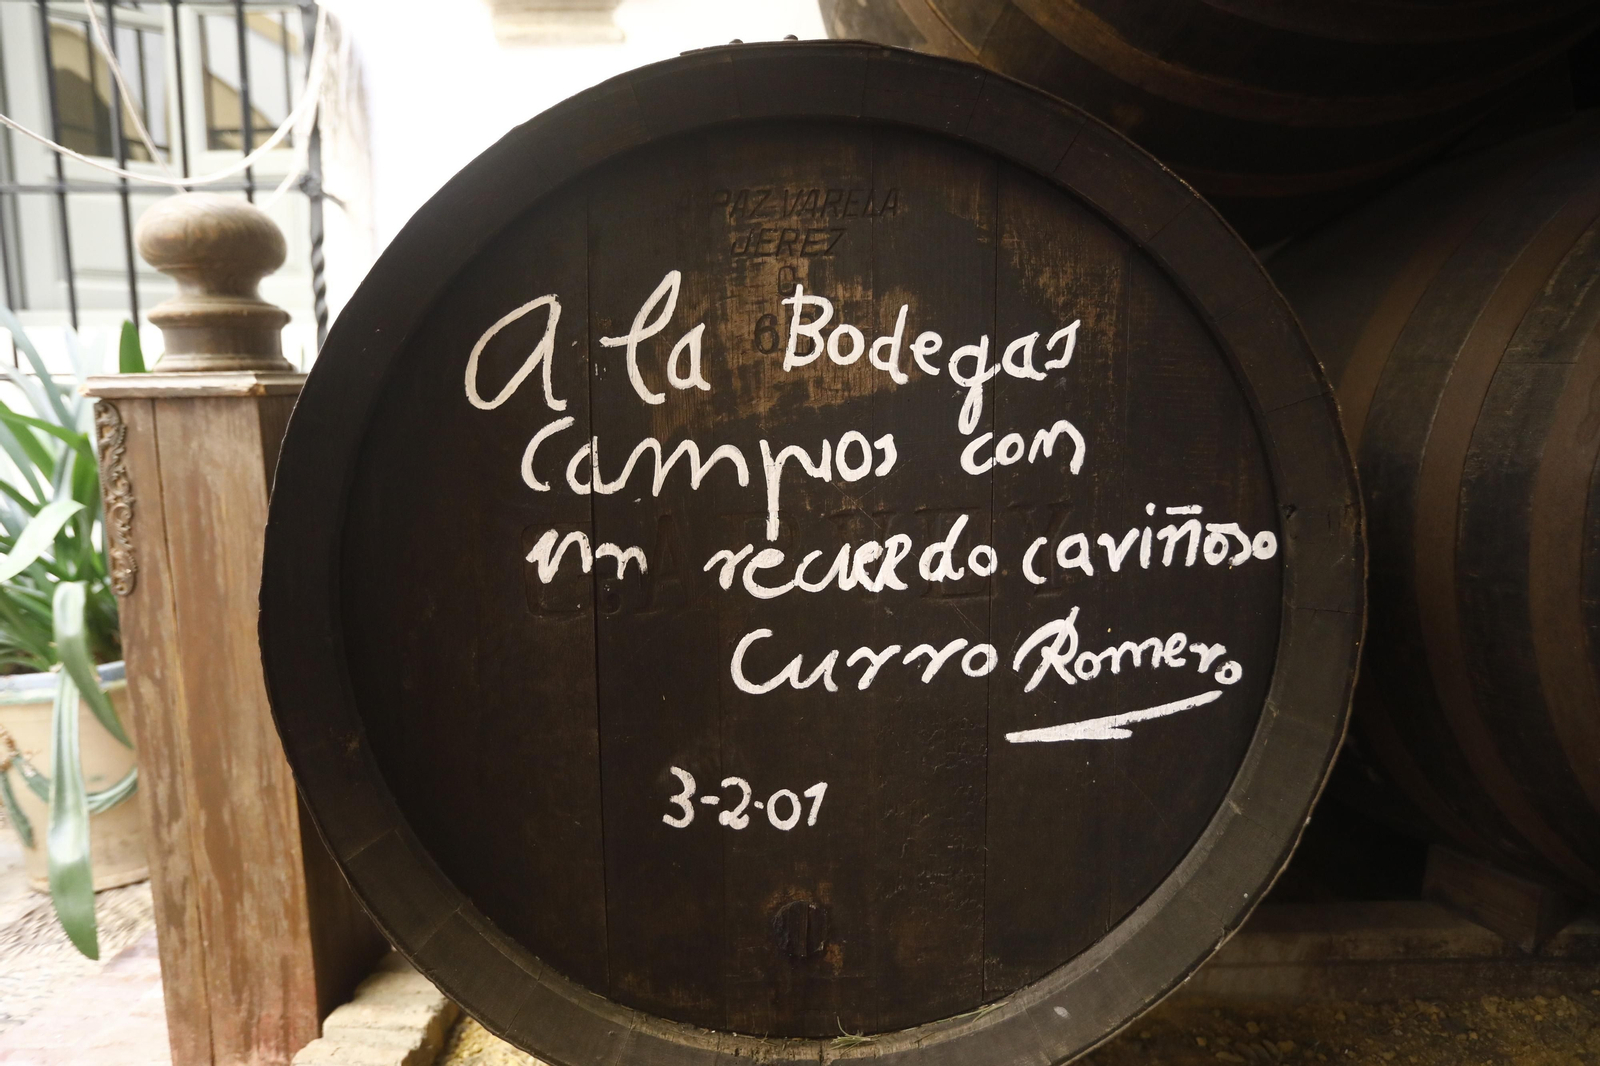 A PAZ-VARELA
JEREZ
A la Bodegas
Campos con
un recuerdo cariñoso
Curro Romero
3-2-01